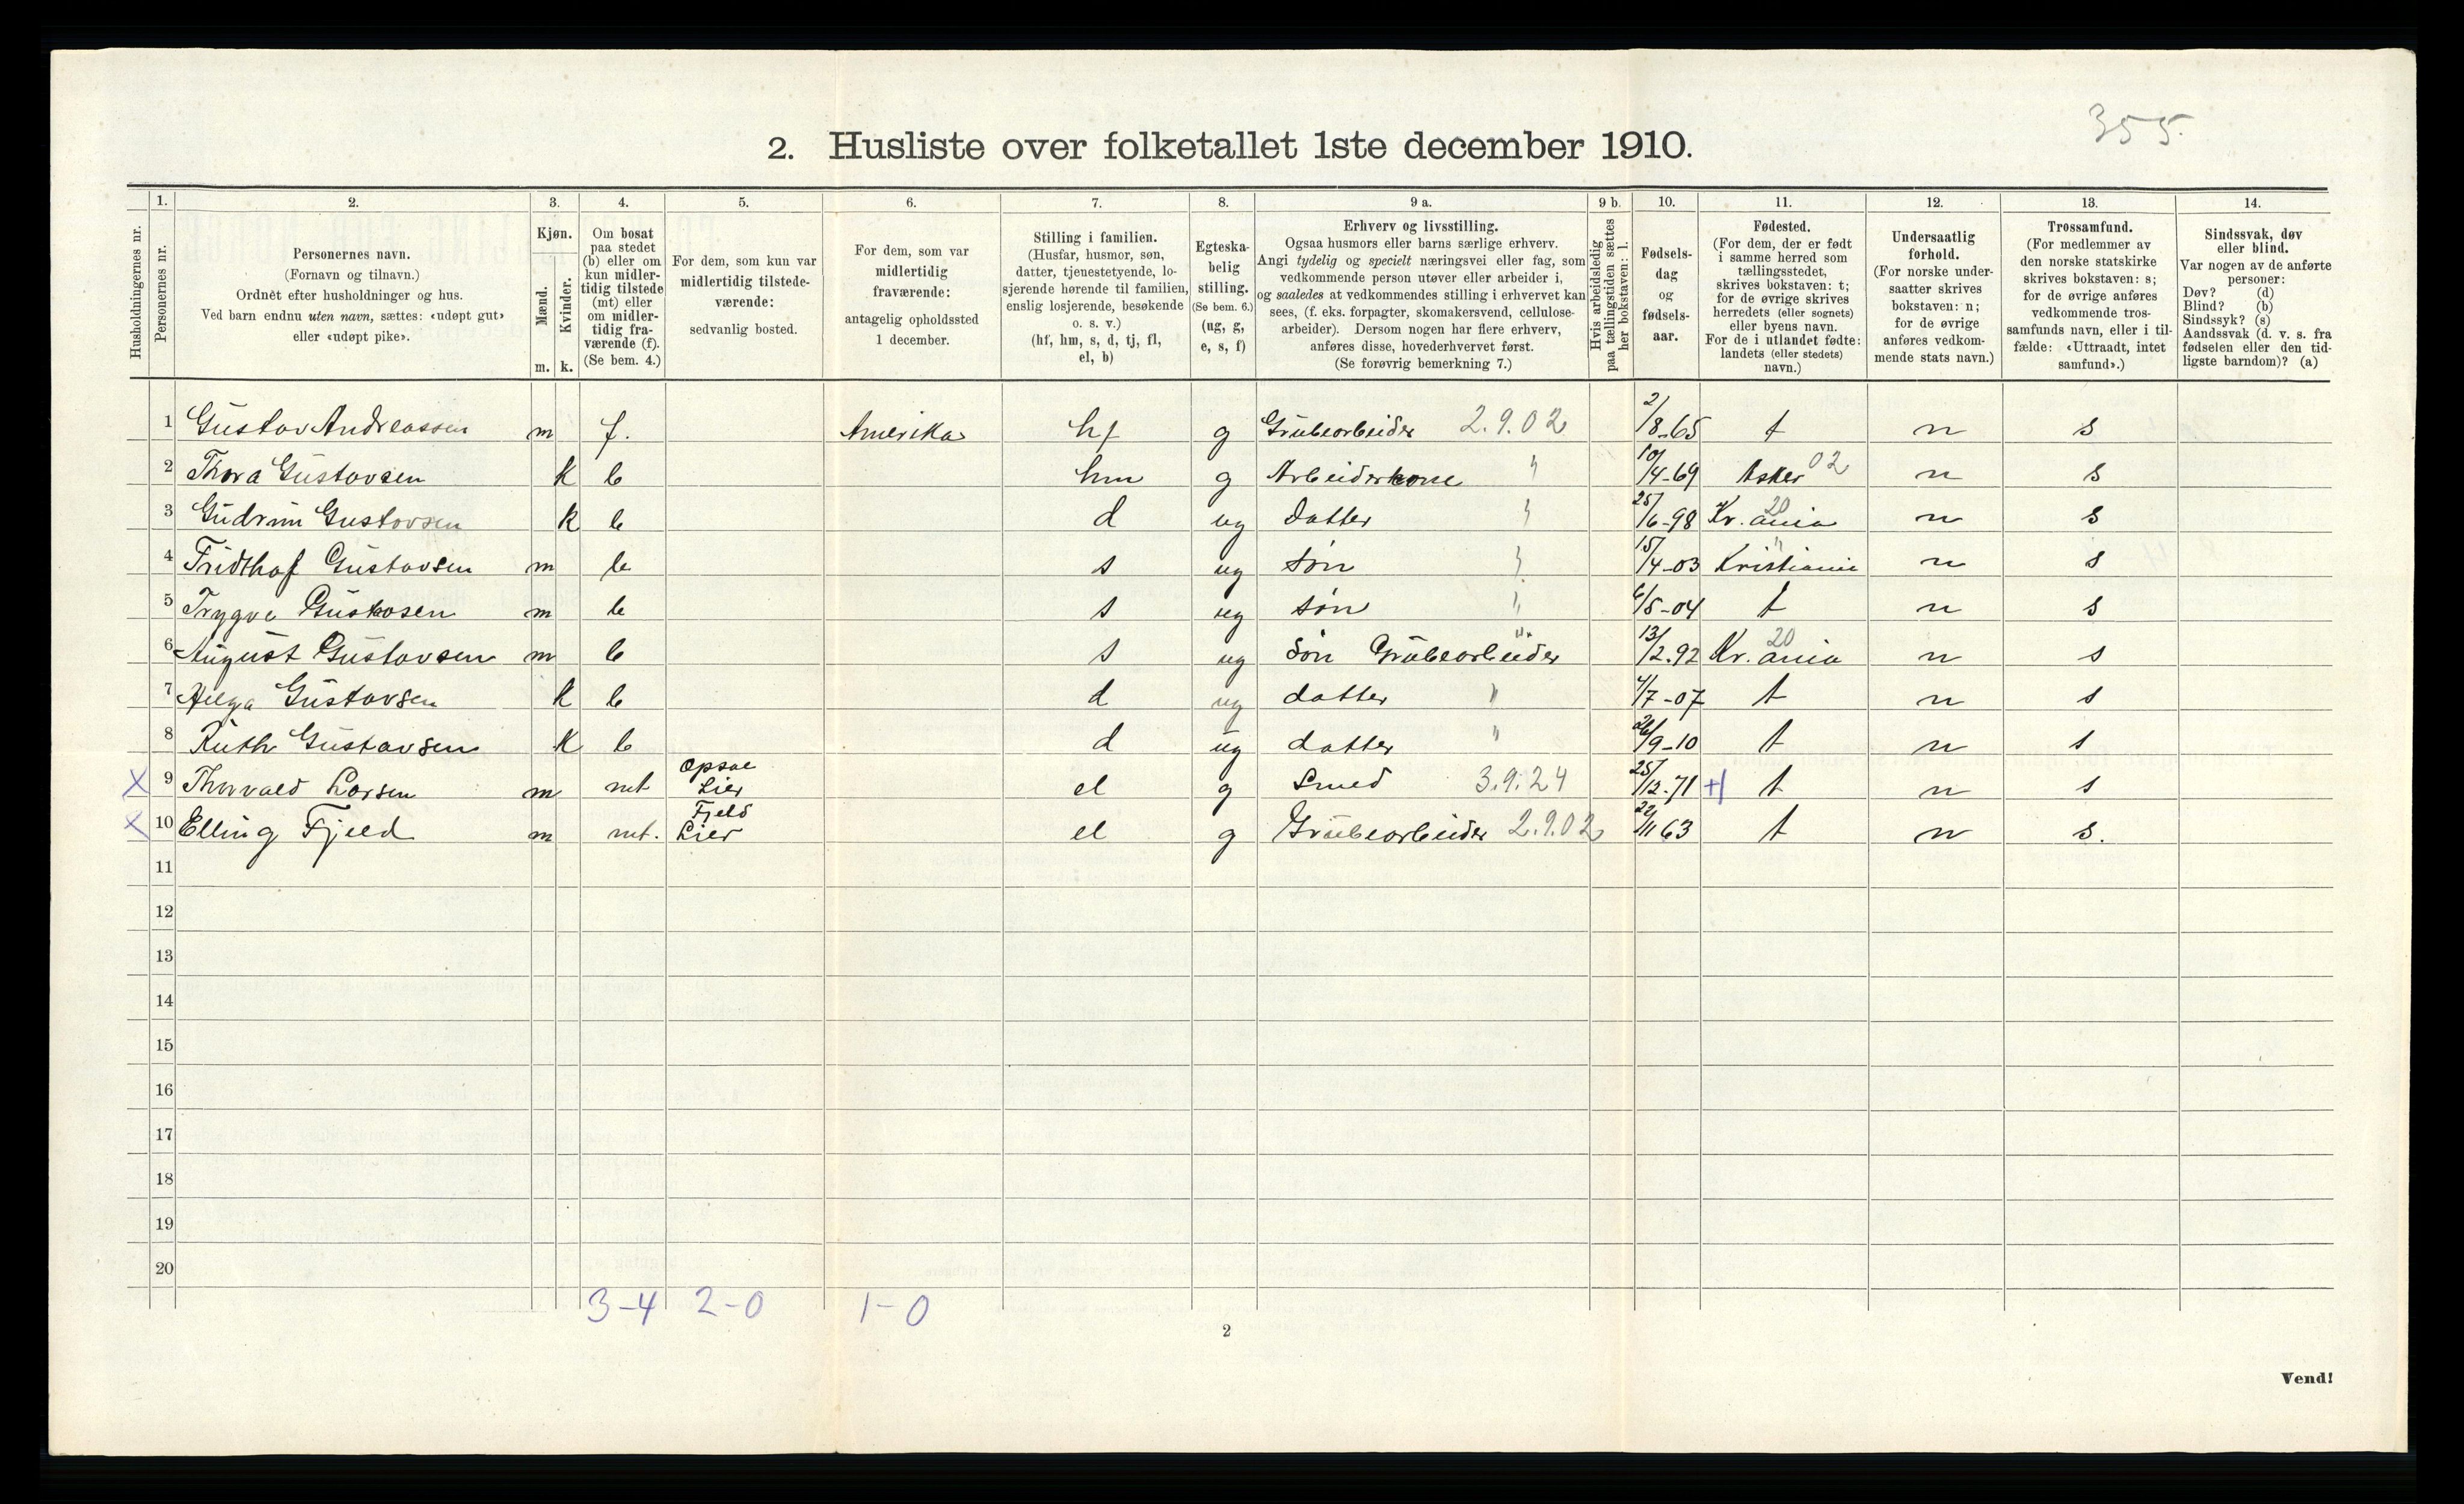 355.
2. Husliste over folketallet 1ste december 1910.
1. 2. 3. 4. 5. 6. 7. 8. 9 a. 9 b. 10. 11. 12. 13. 14.
Husholdningernes nr.
Personernes nr.
Personernes navn.
(Fornavn og tilnavn.)
Ordnet efter husholdninger og hus.
Ved barn endnu uten navn, sættes: «udøpt gut»
eller «udøpt pike».
Kjøn.
Mænd.
Kvinder.
m. k.
Om bosat
paa stedet
(b) eller om
kun midler-
tidig tilstede
(mt) eller
om midler-
tidig fra-
værende (f).
(Se bem. 4.)
For dem, som kun var
midlertidig tilstede-
værende:
sedvanlig bosted.
For dem, som var
midlertidig
fraværende:
antagelig opholdssted
1 december.
Stilling i familien.
(Husfar, husmor, søn,
datter, tjenestetyende, lo-
sjerende hørende til familien,
enslig losjerende, besøkende
o. s. v.)
(hf, hm, s, d, tj, fl,
el, b)
Egteska-
belig
stilling.
(Se bem. 6.)
(ug, g,
e, s, f)
Erhverv og livsstilling.
Ogsaa husmors eller barns særlige erhverv.
Angi tydelig og specielt næringsvei eller fag, som
vedkommende person utøver eller arbeider i,
og saaledes at vedkommendes stilling i erhvervet kan
sees, (f. eks. forpagter, skomakersvend, cellulose-
arbeider). Dersom nogen har flere erhverv,
anføres disse, hovederhvervet først.
(Se forøvrig bemerkning 7.)
Hvis arbeidsledig
paa tællingstiden sættes
her bokstaven: l.
Fødsels-
dag
og
fødsels-
aar.
Fødested.
(For dem, der er født
i samme herred som
tællingsstedet,
skrives bokstaven: t;
for de øvrige skrives
herredets (eller sognets)
eller byens navn.
For de i utlandet fødte:
landets (eller stedets)
navn.)
Undersaatlig
forhold.
(For norske under-
saatter skrives
bokstaven: n;
for de øvrige
anføres vedkom-
mende stats navn.)
Trossamfund.
(For medlemmer av
den norske statskirke
skrives bokstaven: s;
for de øvrige anføres
vedkommende tros-
samfunds navn, eller i til-
fælde: «Uttraadt, intet
samfund».)
Sindssvak, døv
eller blind.
Var nogen av de anførte
personer:
Døv? (d)
Blind? (b)
Sindssyk? (s)
Aandssvak (d. v. s. fra
fødselen eller den tid-
ligste barndom)? (a)
1 Gustav Andreassen m f. Amerika hf g Grubearbeider 2.9.02 2/8-65 t n s
2 Thora Gustavsen k b hm g Arbeiderkone " 10/4-69 Asker 02 n s
3 Gudrun Gustavsen k b d ug datter " 25/6-98 Kr.ania 20 n s
4 Fridthof Gustavsen m b s ug søn " 15/4-03 Kristiania " n s
5 Trygve Gustavsen m b s ug søn " 6/5-04 t n s
6 August Gustavsen m b s ug søn Grubearbeider " 13/2.92 Kr.ania 20 n s
7 Helga Gustavsen k b d ug datter " 4/7-07 t n s
8 Ruth Gustavsen k b d ug datter " 26/9-10 t n s
X 9 Thorvald Larsen m mt Opsal Lier el g Smed 3.9.24 25/12-71 t n s
X 10 Elling Fjeld m mt. Fjeld Lier el g Grubearbeider 2.9.02 22/11 63 t n s.
11
12
13
14
15
16
17
18
19
20
3-4 2-0 1-0
2
Vend!